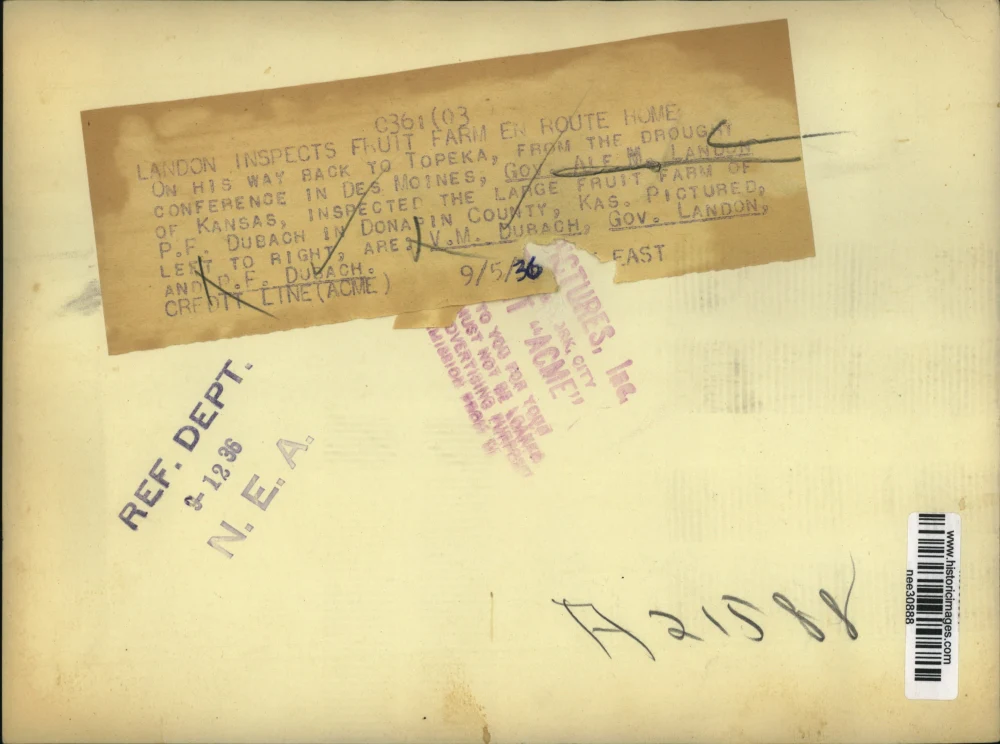 C361(03
LANDON INSPECTS FRUIT FARM EN ROUTE HOME
ON HIS WAY BACK TO TOPEKA, FROM THE DROUGHT
CONFERENCE IN DES MOINES, GOV. ALF M. LANDON
OF KANSAS, INSPECTED THE LARGE FRUIT FARM OF
P.F. DUBACH IN DONAPIN COUNTY, KAS. PICTURED,
LEFT TO RIGHT, ARE: V.M. DUBACH, GOV. LANDON,
AND P.F. DUBACH.
CREDIT LINE (ACME) 9/5/36 EAST
CTURES, INC.
CITY
"ACME"
TO YOU FOR YOUR
MUST NOT BE LOANED
REF. DEPT.
9-12 36
N. E. A.
A 21588
www.historicimages.com
nee30888